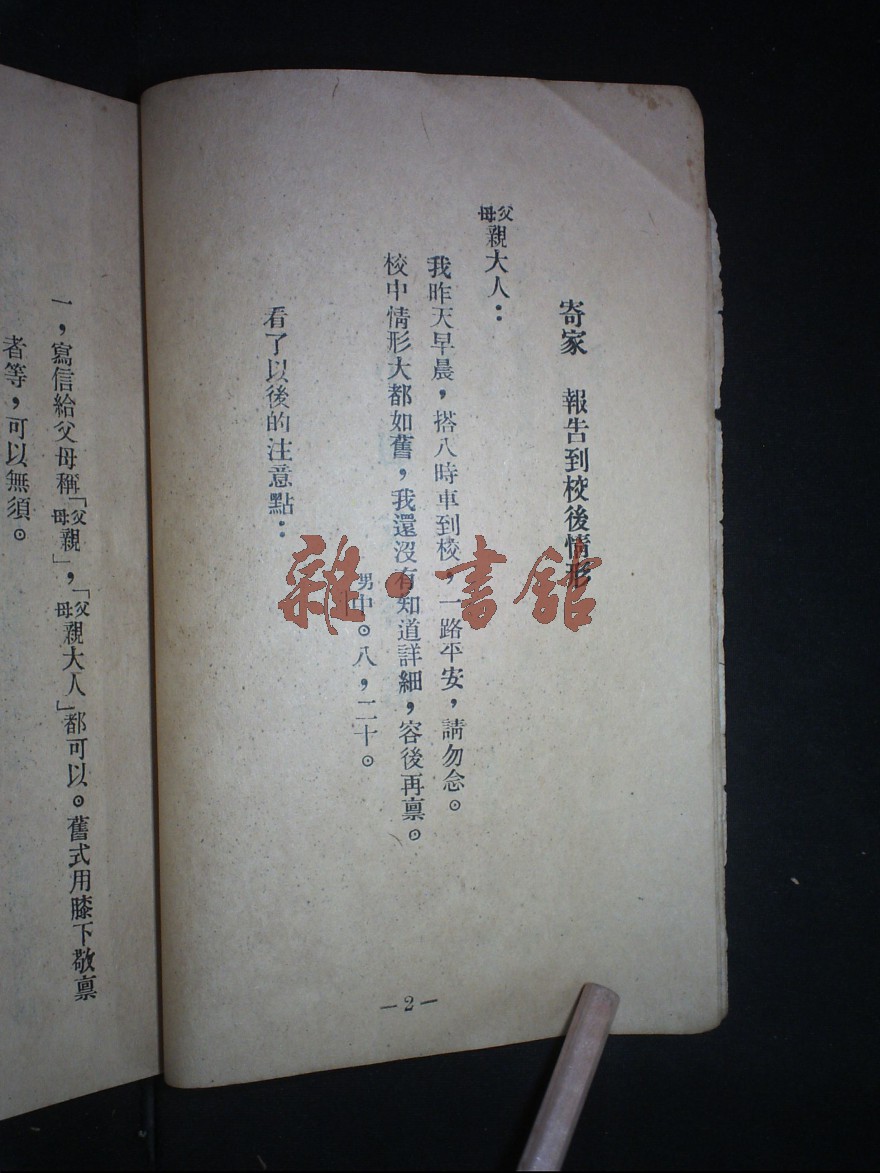 寄家　報告到校後情形
父母親大人：
我昨天早晨，搭八時車到校，一路平安，請勿念。
校中情形大都如舊，我還沒有知道詳細，容後再禀。
男中。八，二十。
看了以後的注意點：
—2—
一，寫信給父母稱「父母親」，「父母親大人」都可以。舊式用膝下敬禀
者等，可以無須。
雜·書館